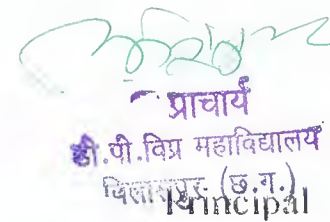 प्राचार्य
डी.पी.विप्र महाविद्यालय
बिलासपुर (छ.ग.)
Principal